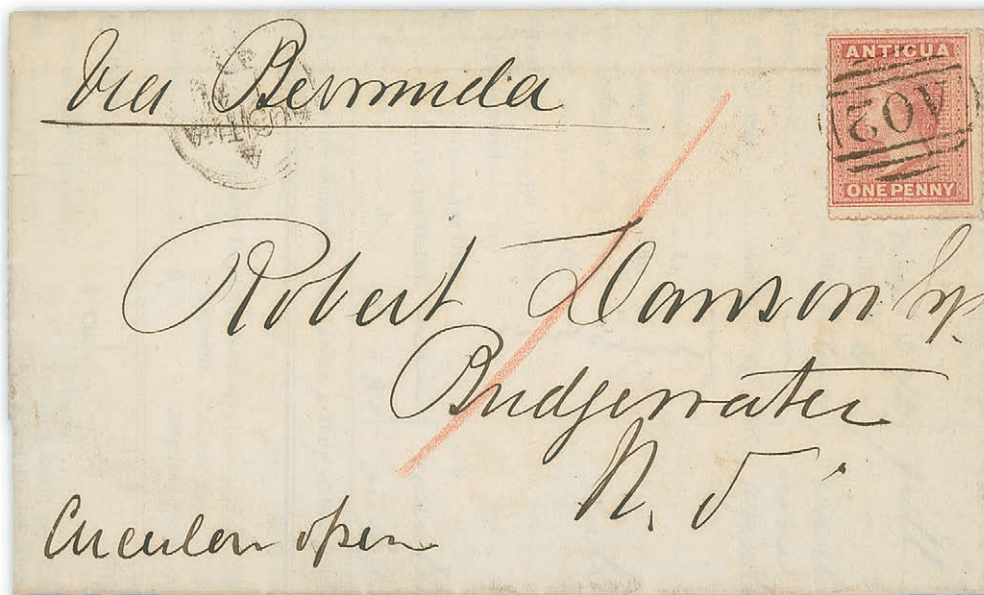 Via Bermuda
ANTIGUA
A02
ONE PENNY
ANTIGUA
A
Robert Dawson Esq.
Bridgewater
N. S.
Circular open